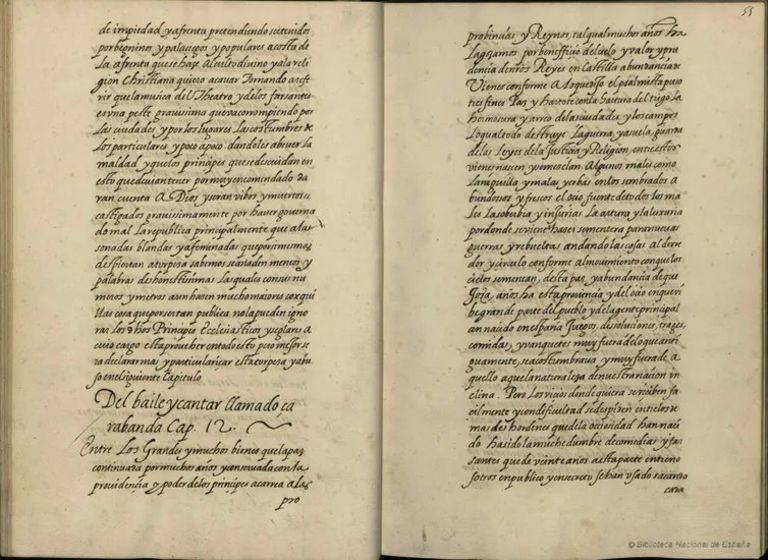 de impiedad y afrenta pretendiendo ser tenidos
por beninos y palacigos y populares acosta de
la afrenta que se haze Al culto diuino y a la reli
gion Christiana quiero acauar Tornando a refe
rir que la musica del Theatro y de los farsantes
es vna peste grauissima que va corrompiendo por
las ciudades y por los lugares las costumbres de
los particulares y poco apoco dandoles a beuer la
maldad y que los principes que se descuidan en
esto que deuian tener por muy encomendado da
ran cuenta A Dios y seran viuos y muertos
castigados grauissimamente por hauer gouerna
do mal La republica principalmente que a las
sonadas blandas y afeminadas que por si mismas
despiertan a torpeza sabemos se añaden meneos y
palabras deshonestissimas Las quales con sus nu
meros y metros aun hacen mucho maiores cosqui
llas cosa que por ser tan publica no la pueden igno
rar los dhos Principes Ecclesiasticos y seglares a
cuio cargo esta proueher en todo esto pero mejor se
ra declararmas y particulariçar esta torpeza y abu
so en el siguiente Capitulo
Del baile y cantar llamado ça
rabanda Cap. 12.
Entre Los Grandes y muchos bienes que la paz
continuada por muchos años y conseruada con la
prouidencia y poder de los principes acarrea a las
pro
55
probincias y Reynos, tal qual muchos años ha
La gozamos por benefficio del cielo y valor y pru
dencia de nros Reyes en Castilla abundancia
Vienes conforme A lo que dixo el psalmista puso
tus fines Paz y hartote con la hartura del trigo la
hermosura y arreo de las ciudades, y los campos
lo qual todo destruye La guerra, y asuela, guarda
de las Leyes de la Justicia y Religion, entre estos
vienes nascen y se mezclan Algunos males como
Langosta y malas yerbas en los sembrados a
bundosos y frescos el ocio fuente de todos los ma
les La soberbia y injurias La artura y la luxuria
por donde se viene hazer sementera para nueuas
guerras y rebueltas andando las cosas al derre
dor y circulo conforme al mouimiento con que los
cielos se menean, desta paz y abundancia de que
Goza años ha esta prouincia y del ocio en que vi
be gran de parte del pueblo y de la gente principal
an nacido en españa Juegos, dissoluciones, trages,
comidas, y vanquetes muy fuera de lo que anti
guamente, se acostumbraua y muy fuera de a
quello a que la naturaleza de nuestra nacion in
clina. Pero los vicios donde quiera se reciben fa
cilmente y con dificultad se despiden entre los de
mas desordenes que de la ociosidad han naci
do ha sido la muchedumbre de comedias, y far
santes que de veinte años a esta parte entre no
sotros en publico y en secreto se han vsado sacando
cada
© Biblioteca Nacional de España